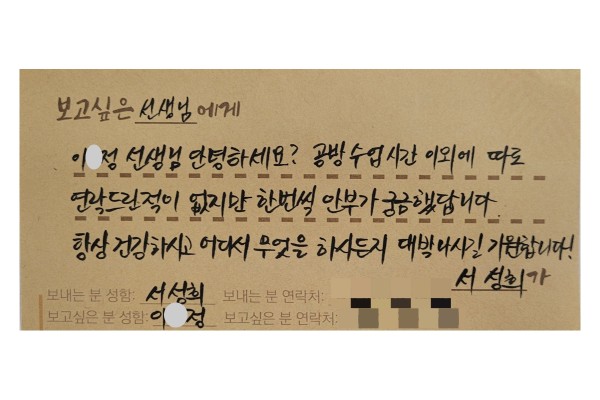 보고싶은 선생님에게
이 정 선생님 안녕하세요? 공방 수업시간 이외에 따로
연락드린적이 없지만 한번씩 안부가 궁금했답니다.
항상 건강하시고 어디서 무엇을 하시든지 대박나시길 기원합니다!
서성희가
보내는 분 성함: 서성희 보내는 분 연락처:
보고싶은 분 성함: 이 정 보고싶은 분 연락처: